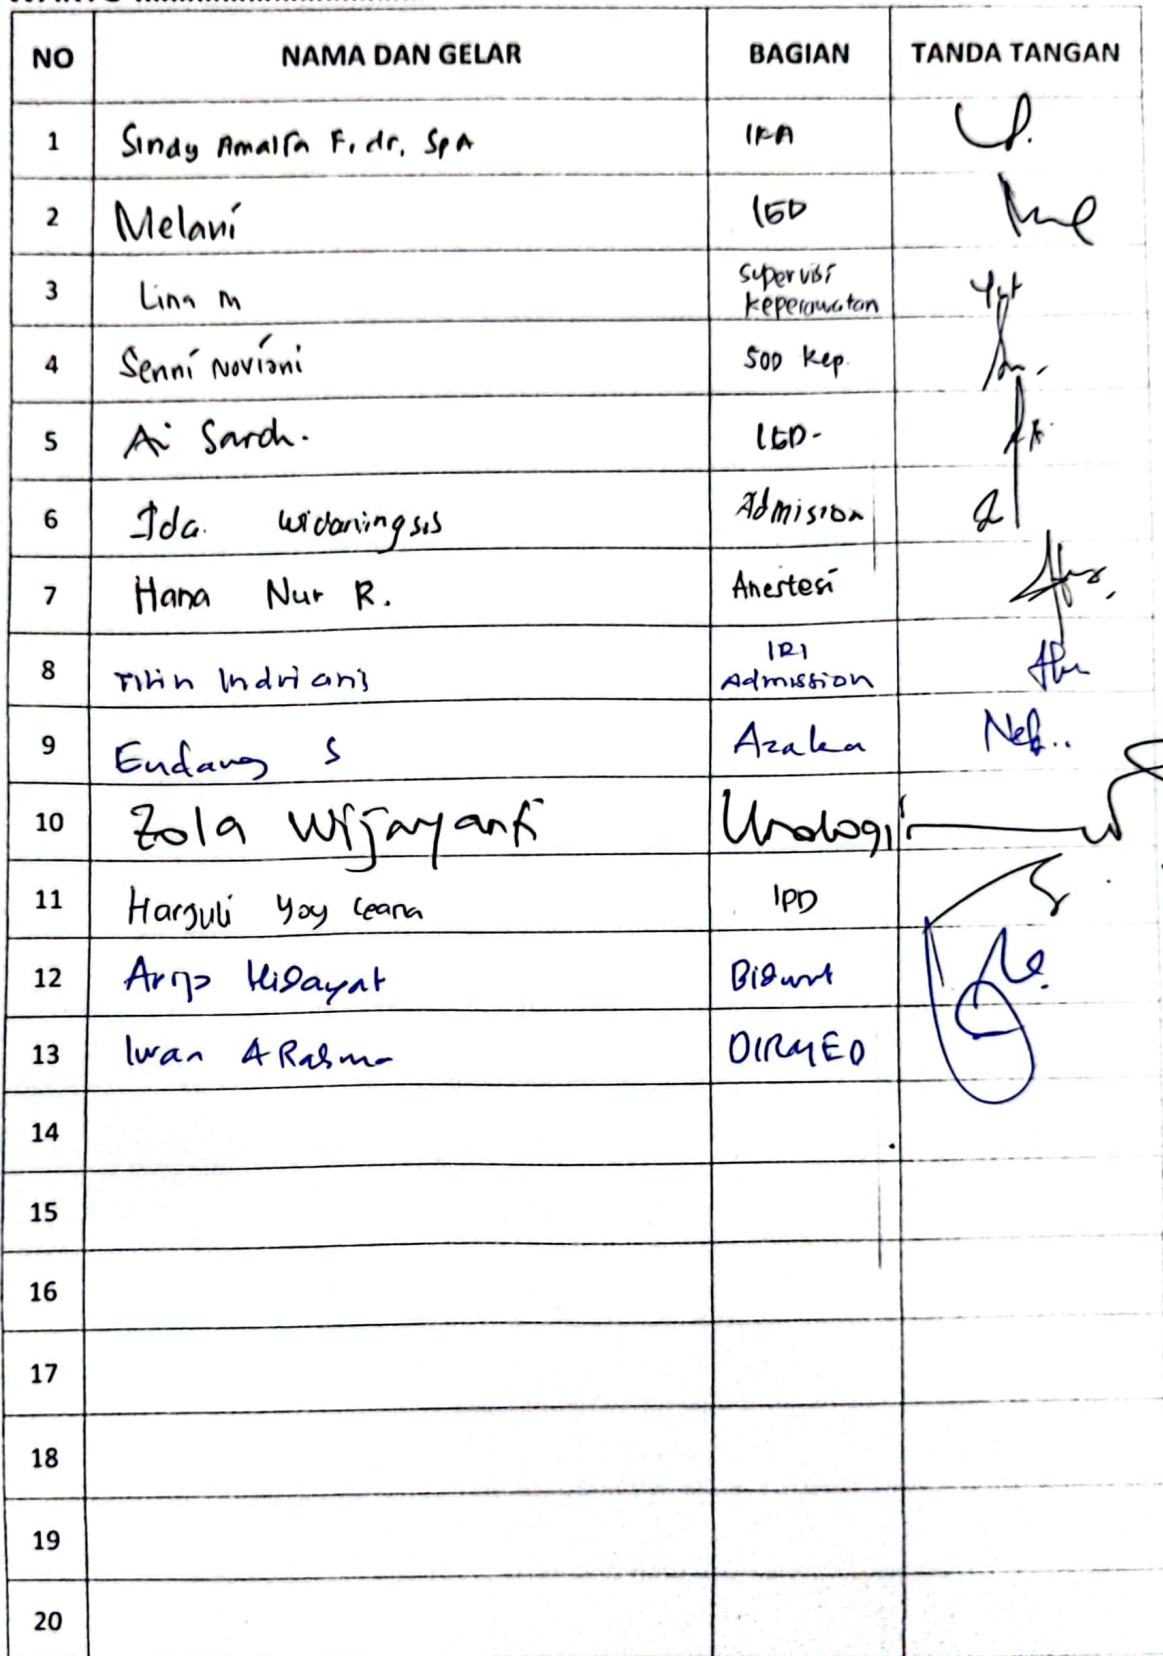 NO NAMA DAN GELAR BAGIAN TANDA TANGAN
1 Sindy Amalia F, dr, SpA IKA
2 Melani IGD
3 Lina M Supervisi
Keperawatan
4 Senni Noviani SDD Kep.
5 Ai Sarah. IGD-
6 Ida. Widaningsis Admision
7 Hana Nur R. Anestesi
8 Titin Indriani IRI
Admission
9 Endang S Azalea
10 Zola Wijayanti Urologi
11 Yoy IPD
12 Arip Hidayat
13 Iwan A Rahma DIRMED
14
15
16
17
18
19
20